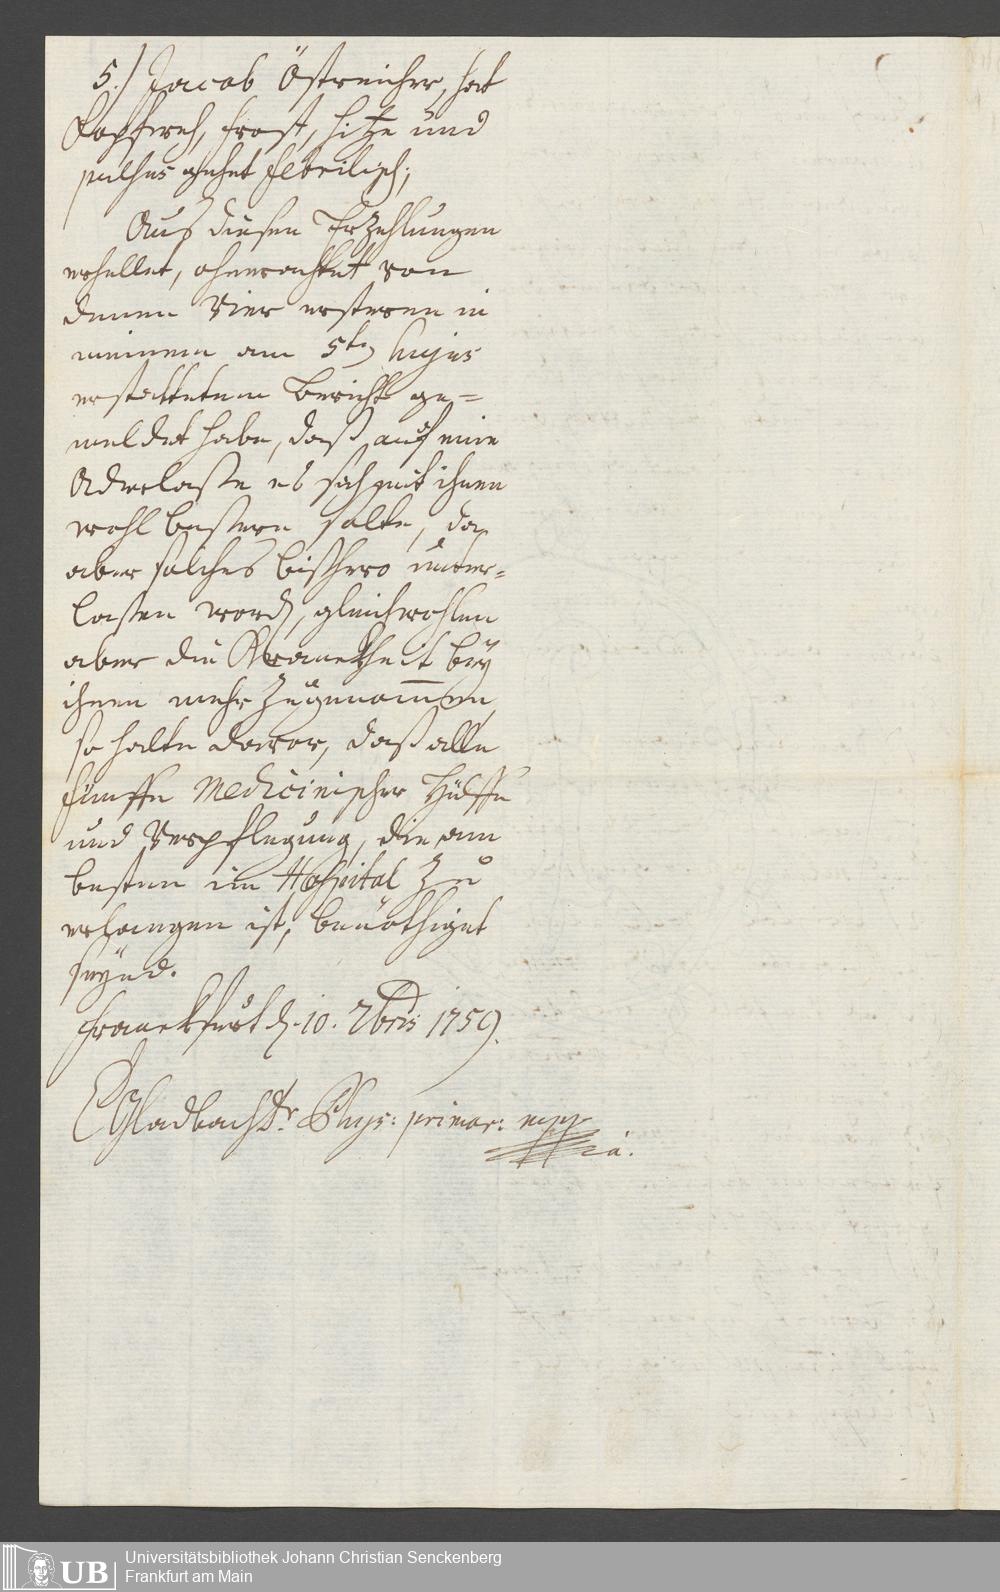 5.) Jacob Östreicher, hat
Kopfweh, Frost, Hitze und
pulsus gehet febrilisch;
Auß diesen Erzehlungen
erhellet, ohnerachtet von
denen Vier ersteren in
meinem am 5ten hujus
erstatteten Bericht ge=
meldet habe, daß auf eine
Aderlaße es sich mit ihnen
wohl beßern solte, da
aber solches bißhero unter=
laßen word, gleichwohlen
aber die Kranckheit bey
ihnen mehr zugenom̄en,
so halte davor, daß alle
fünffe Medicinischer Hülffe
und Verpflegung, die am
besten im Hospital zu
erlangen ist, benöthiget
seynd.
Franckfurt d. 10. 7bris 1759.
Gladbach Dr. Phys: primar: mpp
ia.
UB Universitätsbibliothek Johann Christian Senckenberg
Frankfurt am Main